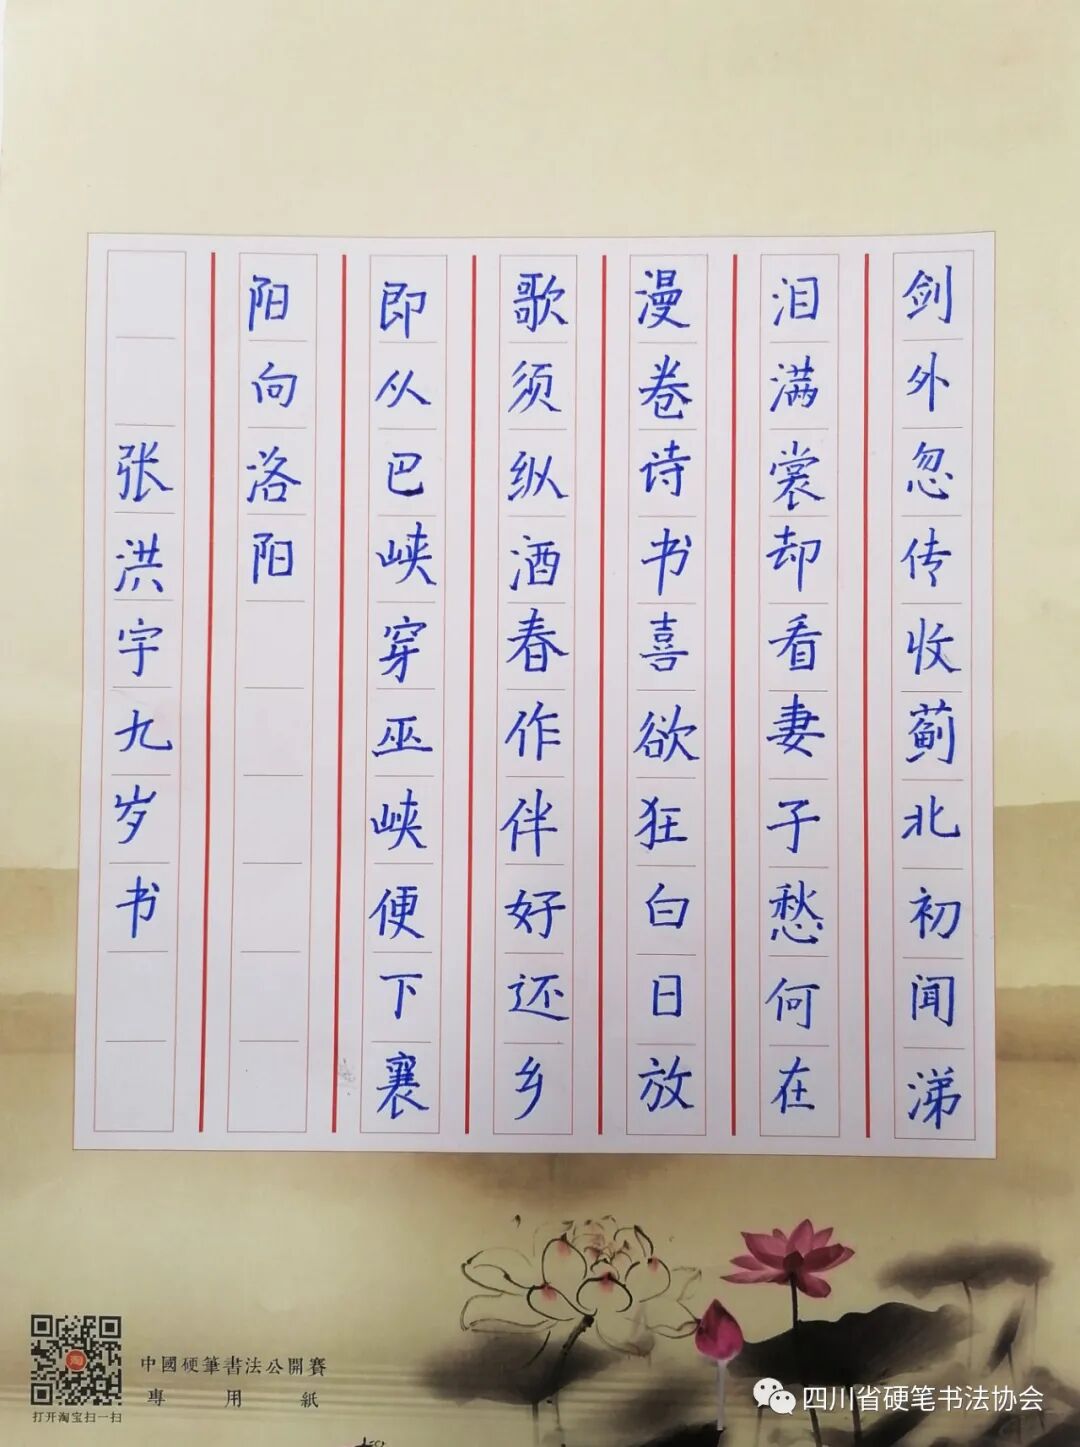 剑外忽传收蓟北初闻涕
泪满裳却看妻子愁何在
漫卷诗书喜欲狂白日放
歌须纵酒春作伴好还乡
即从巴峡穿巫峡便下襄
阳向洛阳
张洪宇九岁书
中國硬筆書法公開賽
專用紙
打开淘宝扫一扫
淘
四川省硬笔书法协会